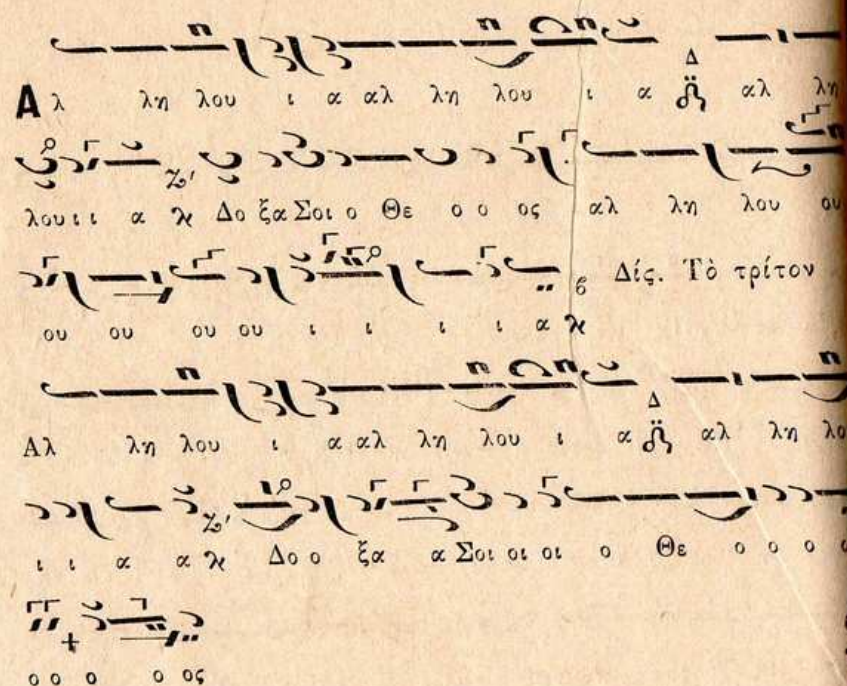 Δ
Αλ λη λου ι α αλ λη λου ι α αλ λη
λου ι ι α Δο ξα Σοι ο Θε ο ο ος αλ λη λου ου
Δίς. Τὸ τρίτον
ου ου ου ου ι ι ι ι α
Δ
Αλ λη λου ι α αλ λη λου ι α αλ λη λο
ι ι α α Δο ο ξα α Σοι οι οι ο Θε ο ο ο
ο ο ο ο ος